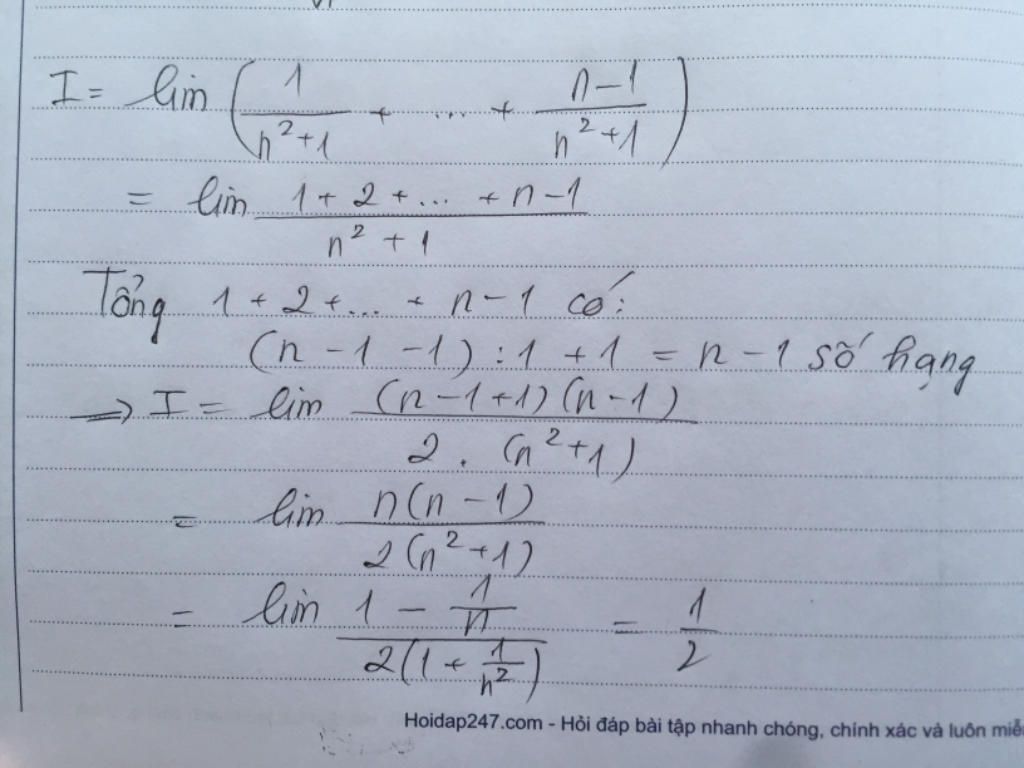 I = lim (1/(n²+1) + ... + (n-1)/(n²+1))
= lim (1+2+...+n-1)/(n²+1)
Tổng 1+2+...+n-1 có:
(n-1-1):1+1 = n-1 số hạng
=> I = lim ((n-1+1)(n-1))/(2.(n²+1))
= lim (n(n-1))/(2(n²+1))
= lim (1 - 1/n)/(2(1 + 1/n²)) = 1/2
Hoidap247.com - Hỏi đáp bài tập nhanh chóng, chính xác và luôn miễ